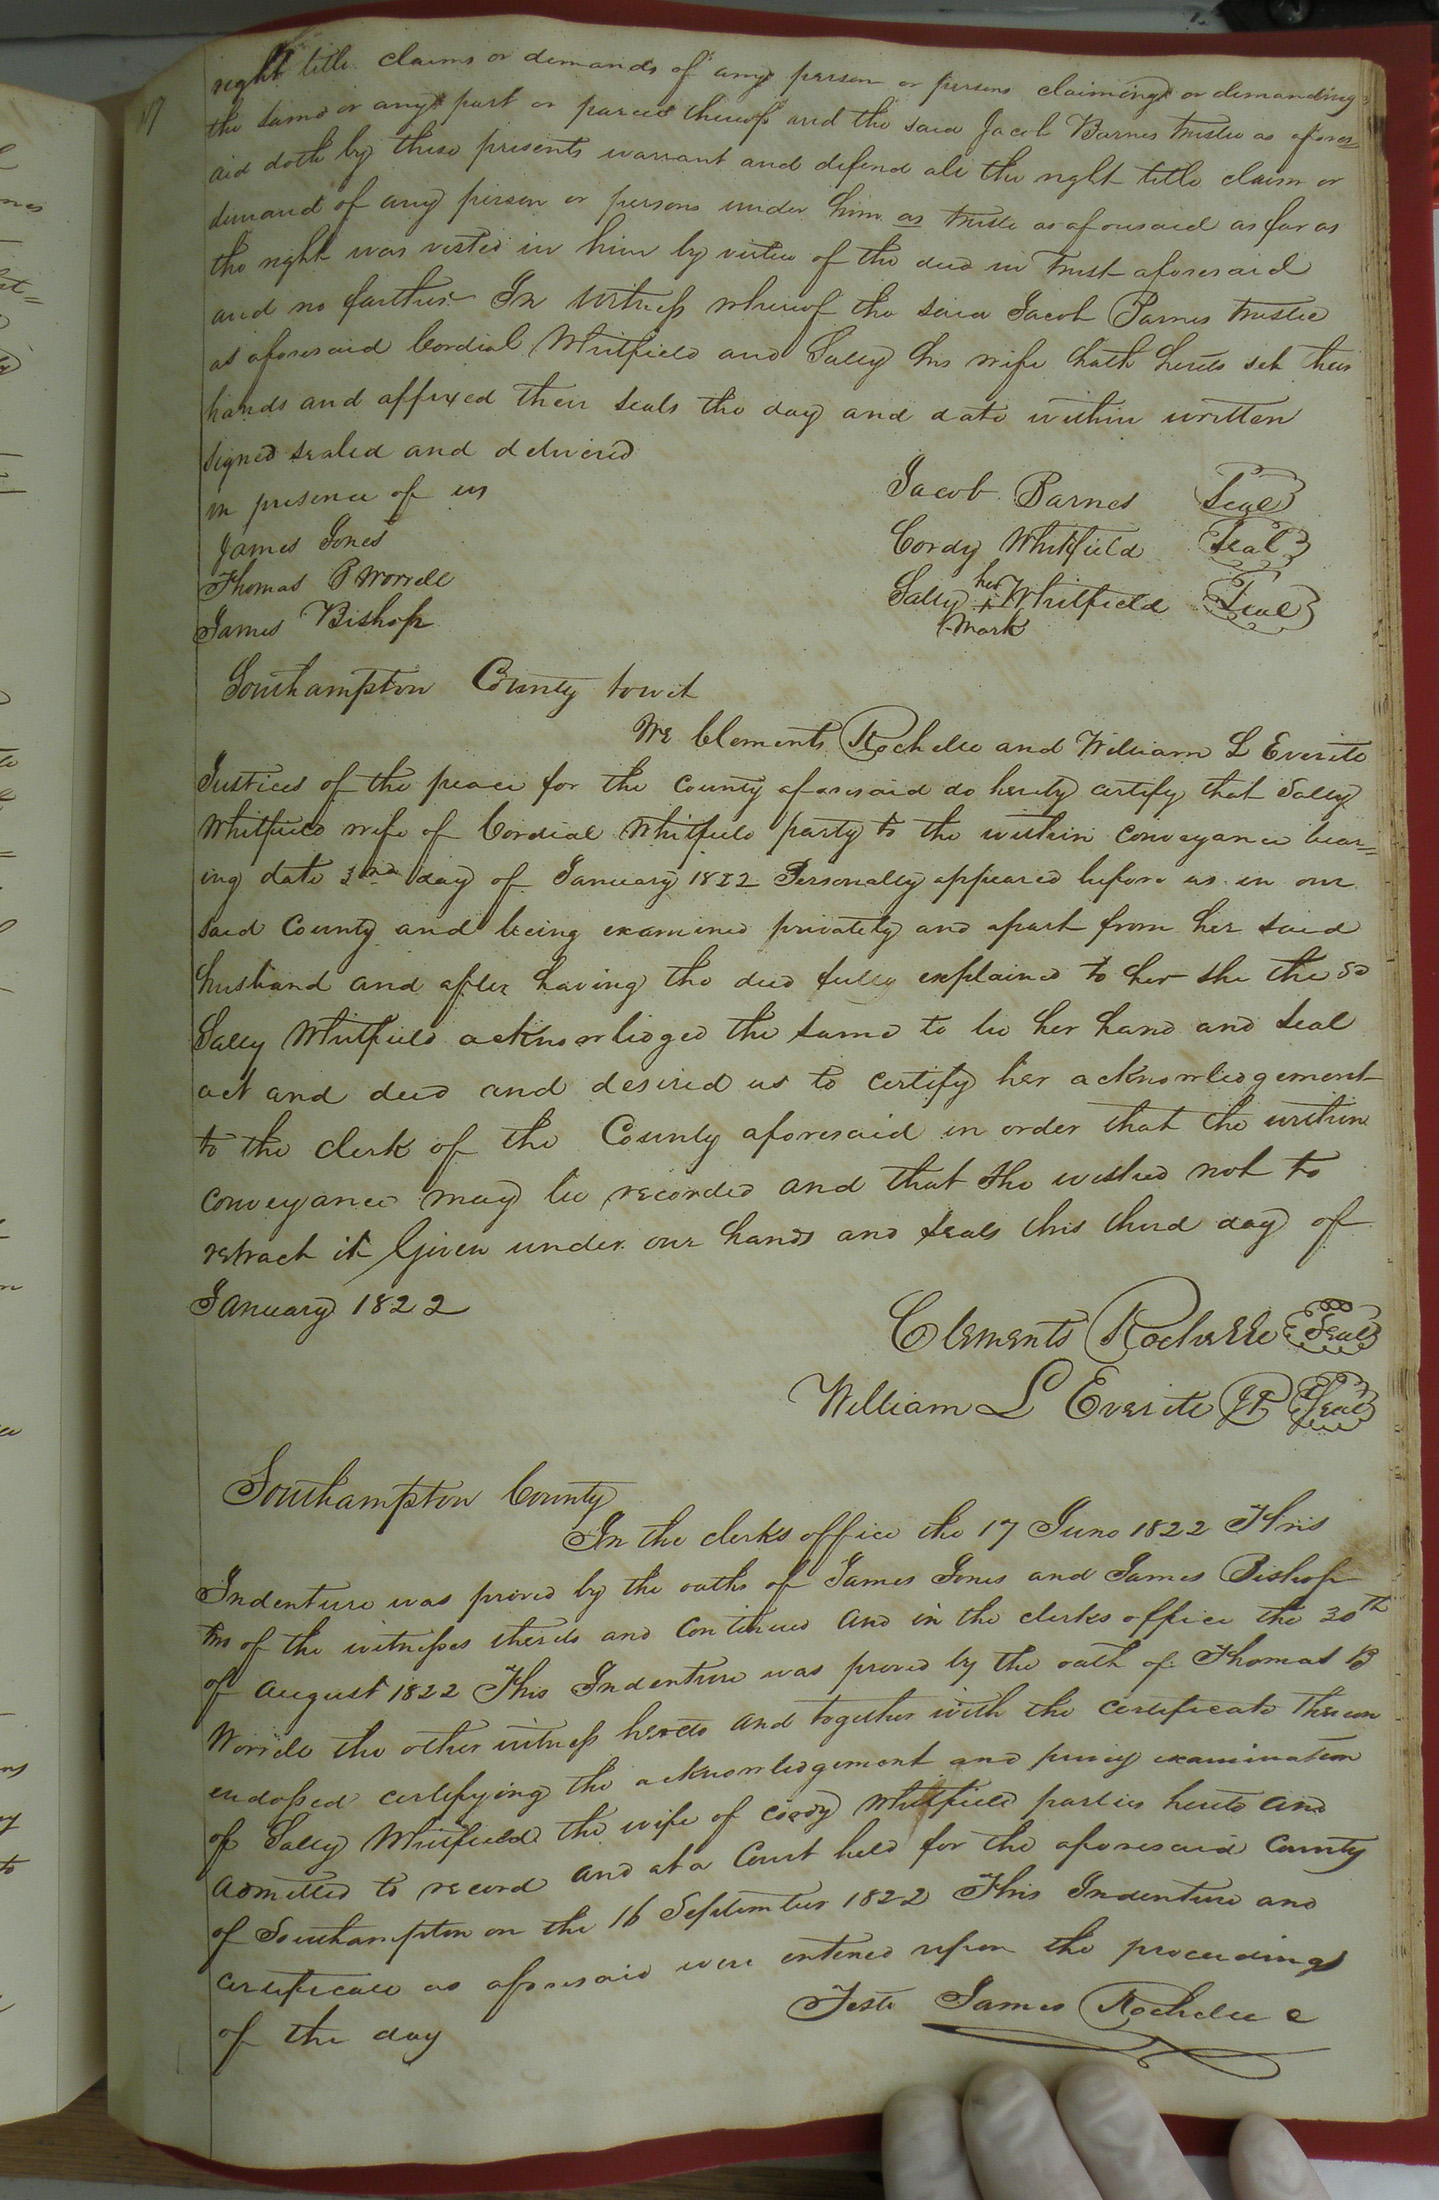 17
right title claims or demands of any person or persons claiming or demanding
the same or any part or parcel thereof and the said Jacob Barnes trustee as afores=
aid doth by these presents warrant and defend all the right title claim or
demand of any person or persons under him as truste as aforesaid as far as
the right was vested in him by virtue of the deed in Trust aforesaid
and no farther In Witness whereof the said Jacob Barnes trustee
as aforesaid Cordial Whitfield and Sally his wife hath hereto set their
hands and affixed their seals the day and date within written
signed sealed and delivered
in presence of us
Jacob Barnes Seal
James Jones
Cordy Whitfield Seal
Thomas B Worrell
Sally her + mark Whitfield Seal
James Bishop
Southampton County towit
We Clements Rochelle and William L Everite
Justices of the peace for the County aforesaid do hereby certify that Sally
Whitfield wife of Cordial Whitfield party to the within conveyance bear=
ing date 3rd day of January 1822 Personally appeared before us in our
said County and being examined privately and apart from her said
husband and after having the deed fully explained to her she the sd
Sally Whitfield acknowledged the same to be her hand and seal
act and deed and desired us to certify her acknowledgement
to the clerk of the County aforesaid in order that the within
conveyance may be recorded and that she wished not to
retract it Given under our hands and seals this third day of
January 1822
Clements Rochelle Seal
William L Everite JP Seal
Southampton County
In the clerks office the 17 June 1822 This
Indenture was proved by the oaths of James Jones and James Bishop
two of the witnesses thereto and continued and in the clerks office the 30th
of August 1822 This Indenture was proved by the oath of Thomas B
Worrell the other witness hereto and together with the certificate thereon
endossed certifying the acknowledgement and privy examination
of Sally Whitfield the wife of Cordy Whitfield parties hereto and
admitted to record and at a Court held for the aforesaid County
of Southampton on the 16 September 1822 This Indenture and
certificate as aforesaid were entered upon the proceedings
of the day
Teste James Rochelle C